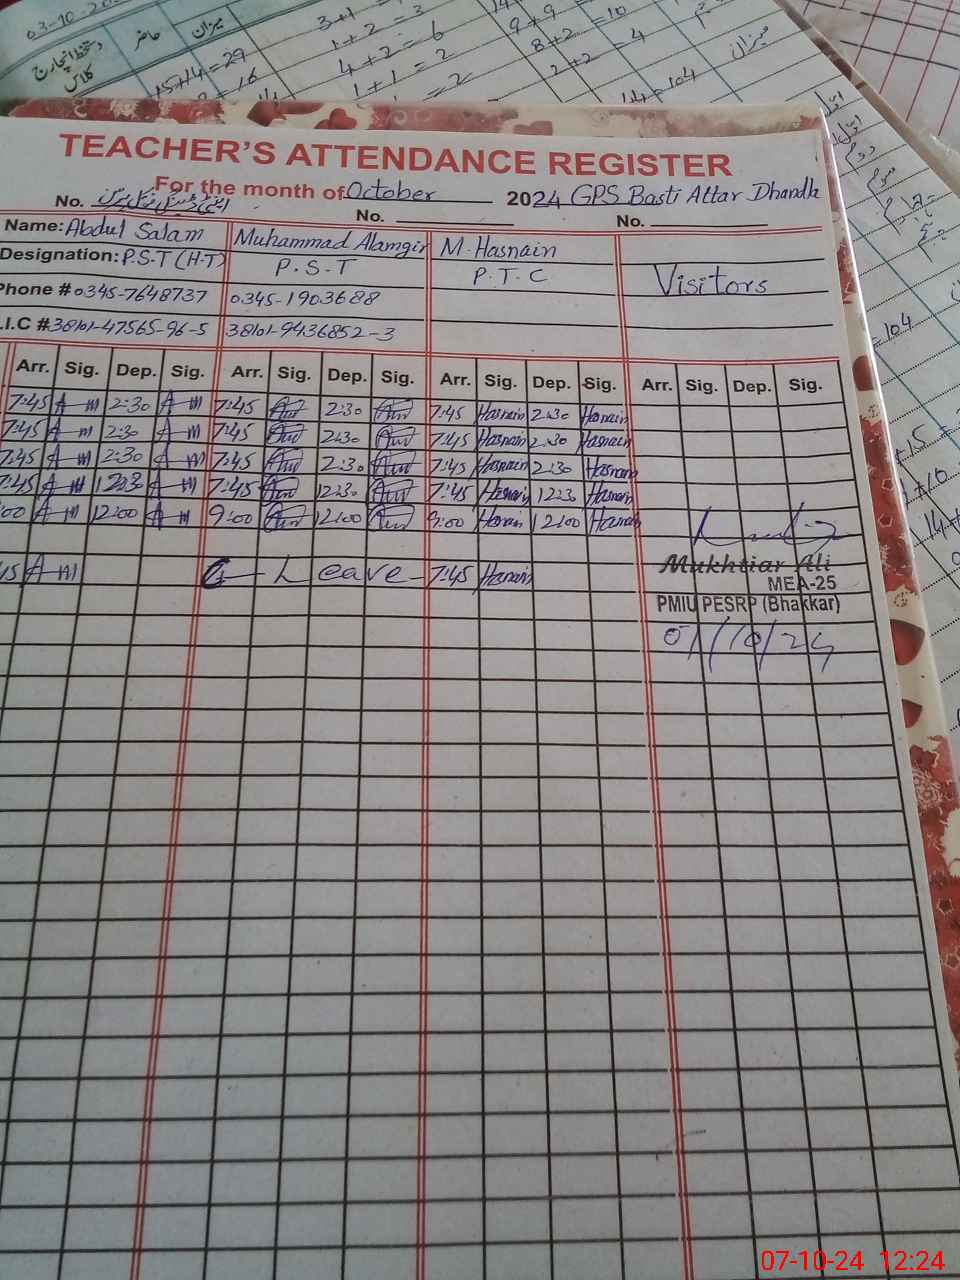 03-10-20
میزان
حاضر
دستخط انچارج
کلاس
15+14=29
3+1
1+2=3
4+2=6
1+1=2
=2
9+9
=10
8+2
2+2=4
104
میزان
=104
TEACHER'S ATTENDANCE REGISTER
For the month of October 2024 GPS Basti Attar Dhandla
No. No. No.
Name: Abdul Salam Muhammad Alamgir M. Hasnain
Designation: P.S.T (H.T) P.S.T P.T.C Visitors
Phone # 0345-7648737 0345-1903688
.I.C # 38101-47565-96-5 38101-9436852-3
Arr. Sig. Dep. Sig. Arr. Sig. Dep. Sig. Arr. Sig. Dep. Sig. Arr. Sig. Dep. Sig.
7:45 2:30 7:45 2:30 7:45 Hasnain 2:30 Hasnain
7:45 2:30 7:45 2:30 7:45 Hasnain 2:30 Hasnain
7:45 2:30 7:45 2:30 7:45 Hasnain 2:30 Hasnain
7:45 12:30 7:45 12:30 7:45 Hasnain 12:30 Hasnain
:00 12:00 9:00 12:00 9:00 Hasnain 12:00 Hasnain
45 Leave 7:45 Hasnain
Mukhtiar Ali
MEA-25
PMIU PESRP (Bhakkar)
07/10/24
07-10-24 12:24